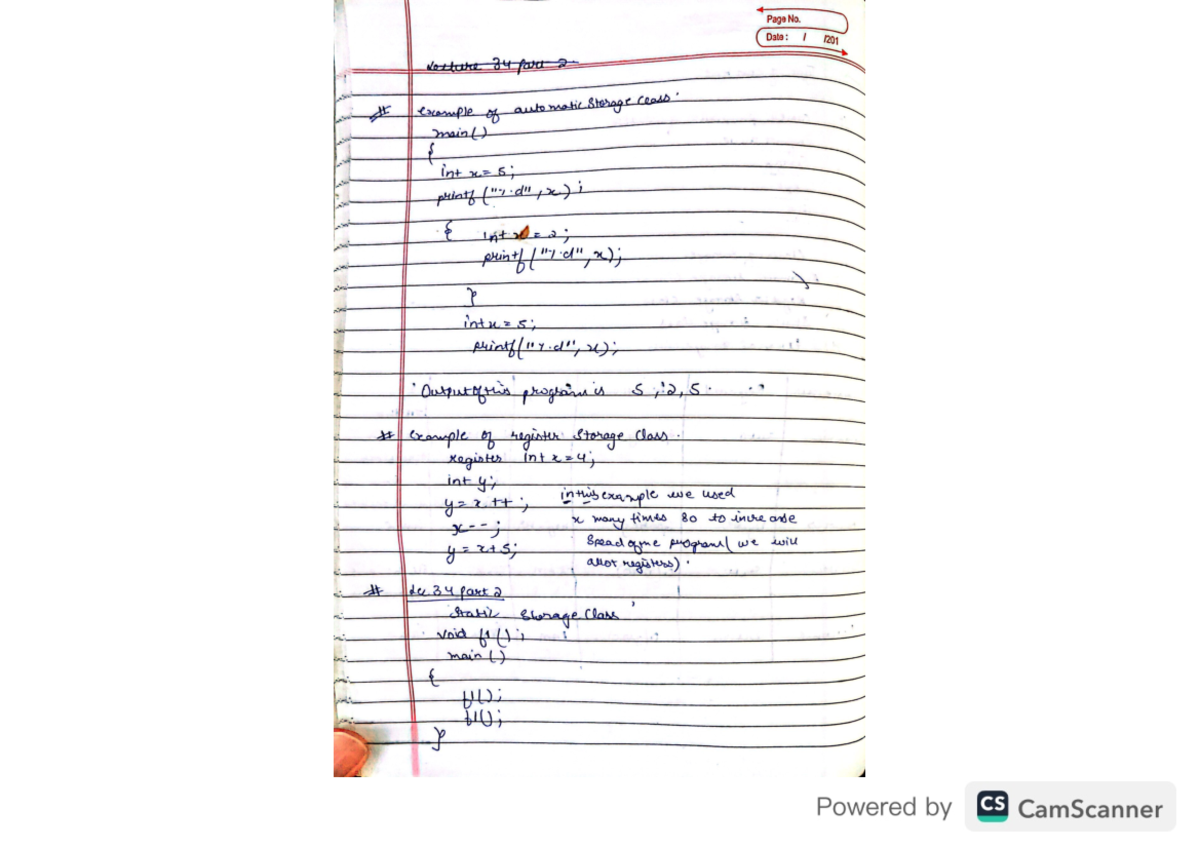 Page No.
Date: / /201
Lecture 34 part 2
# example of automatic storage class.
main()
{
int x = 5;
printf ("%d", x);
{ int x = 2;
printf ("%d", x);
}
int x = 5;
printf("%d", x);
Output of this program is 5, 2, 5.
# example of register storage class.
register int x = 4;
int y;
y = x ++; in this example we used
x--; x many times so to increase
y = x+5; spead of me program( we will
allot registers).
# Lec 34 part 2
static storage class
void f1();
main()
{
f1();
f1();
}
Powered by CS CamScanner